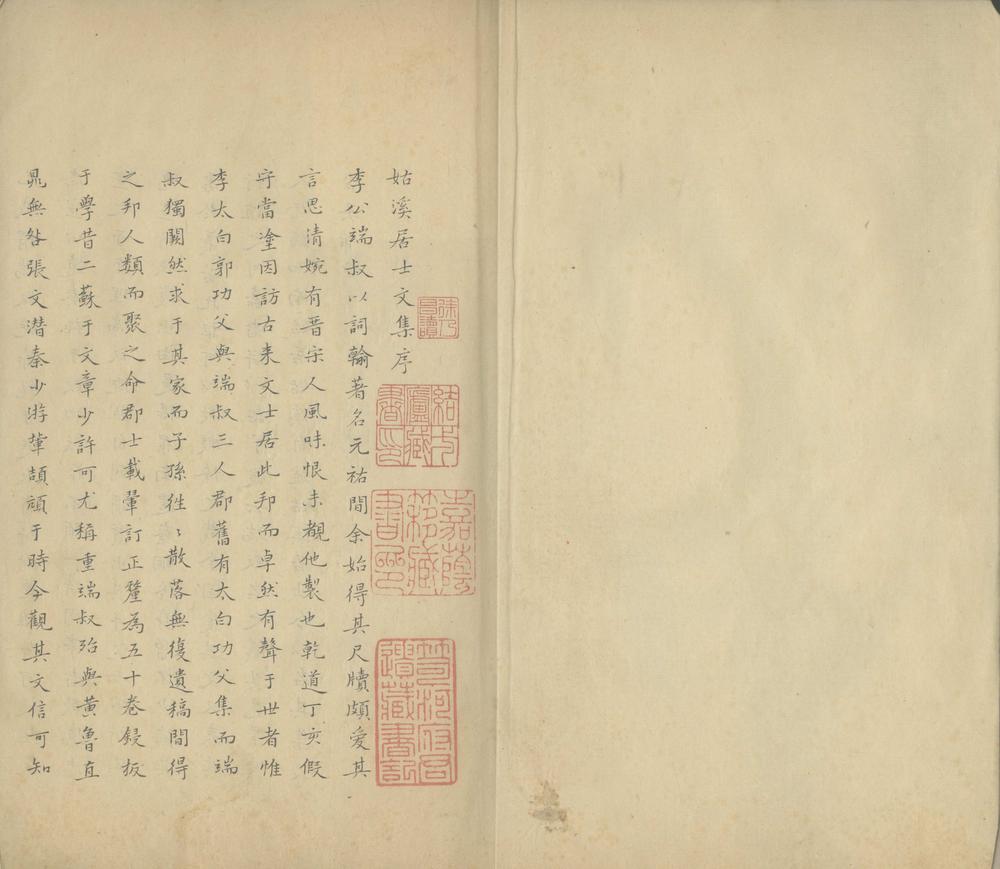 姑溪居士文集序
李公端叔以詞翰著名元祐間余始得其尺牘頗愛其
言思清婉有晋宋人風味恨未覩他製也乾道丁亥假
守當塗因訪古来文士居此邦而卓然有聲于世者惟
李太白郭功父與端叔三人郡舊有太白功父集而端
叔獨闕然求于其家而子孫徃〻散落無復遺稿間得
之邦人類而聚之命郡士載
訂正釐為五十卷鋟板
于學昔二蘇于文章少許可尤稱重端叔殆與黄魯直
晁無咎張文潜秦少游輩頡頏于時今觀其文信可知
徐乃昌讀
結一廬藏書印
嘉蔭簃藏書印
笥河府君遺藏書記